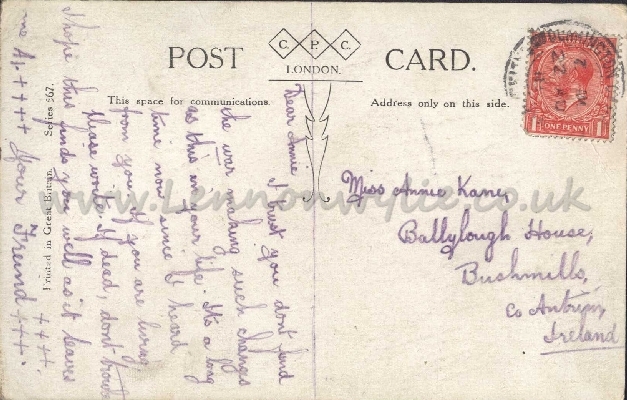 POST CARD.
C. P. C.
LONDON.
This space for communications.
Address only on this side.
Dear Annie
I trust you don't find
the war making such changes
as this in your life. It's a long
time now since I heard
from you. If you are living
please write, if dead, don't
I hope this finds you well as it leaves
me At ++++ Your Freind +++.
+++.
Miss Annie Kane,
Ballylough House,
Bushmills,
Co Antrim,
Ireland
ONE PENNY
1 1
Printed in Great Britain. Series 567.
www.Lennonwylie.co.uk